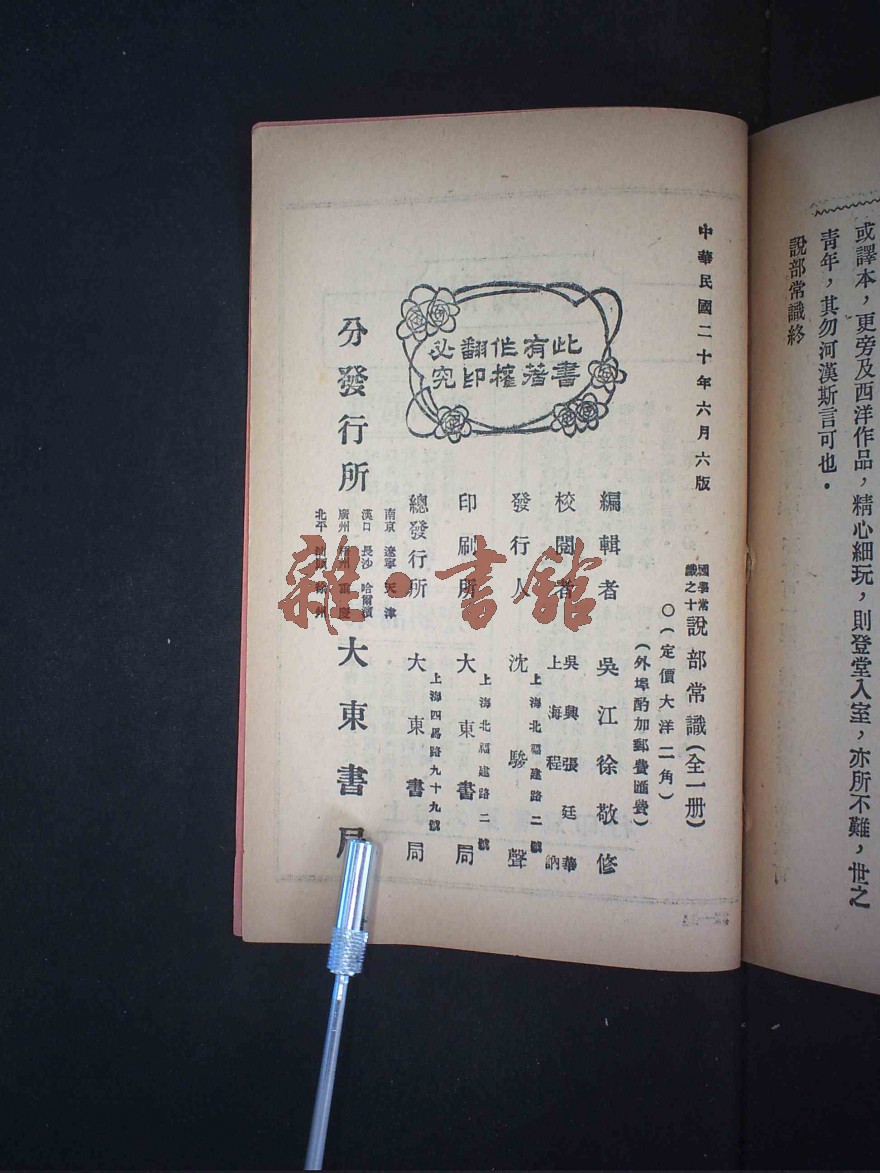 或譯本，更旁及西洋作品，精心細玩，則登堂入室，亦所不難，世之
青年，其勿河漢斯言可也。
說部常識終
中華民國二十年六月六版
國學常
識之十
說部常識（全一冊）
〇（定價大洋二角）
（外埠酌加郵費匯費）
此書
有著
作權
翻印
必究
編輯者 吳江徐敬修
校閱者
吳興張廷華
上海程
發行人 沈駿聲
上海北福建路二號
印刷所 大東書局
上海四馬路九十九號
總發行所 大東書局
分發行所
南京 遼寧 天津
漢口 長沙 哈爾濱
廣州 重慶
北平 徐州
大東書局
雜·書館